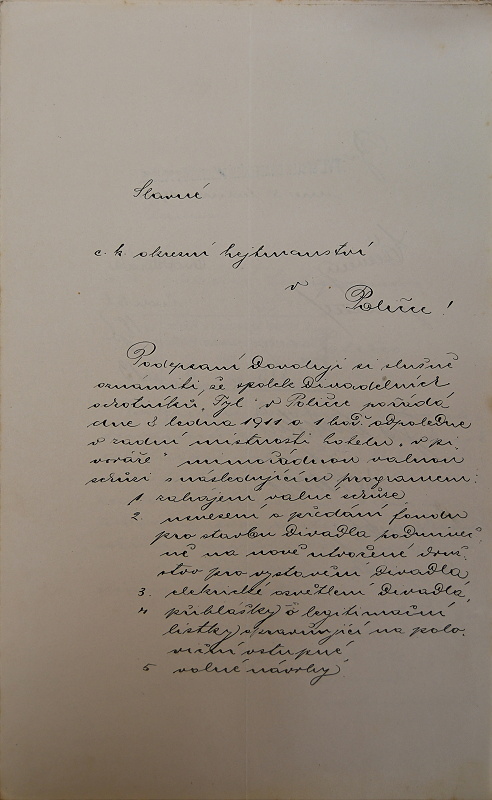 Slavné
c. k. okresní hejtmanství
v
Poličce!
Podepsaní dovolují si slušně
oznámiti, že spolek divadelních
ochotníků "Tyl" v Poličce pořádá
dne 8 ledna 1911 o 1 hod. odpoledne
v zadní místnosti hotelu "v pi
vováře" mimořádnou valnou
schůzi s následujícím programem:
1. zahájení valné schůze
2. usnesení o předání fondu
pro stavbu divadla
na nově utvořené druž
stvo pro vystavění divadla,
3. elektrické osvětlení divadla,
4 přihlášky o legitimační
lístky opravňující na polo
viční vstupné
5 volné návrhy.